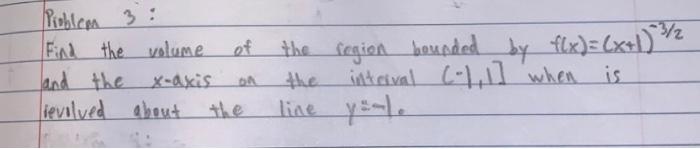 Problem 3:
Find the volume of the region bounded by f(x)=(x+1)^-3/2
and the x-axis on the interval (-1,1] when is
revolved about the line y=-1.